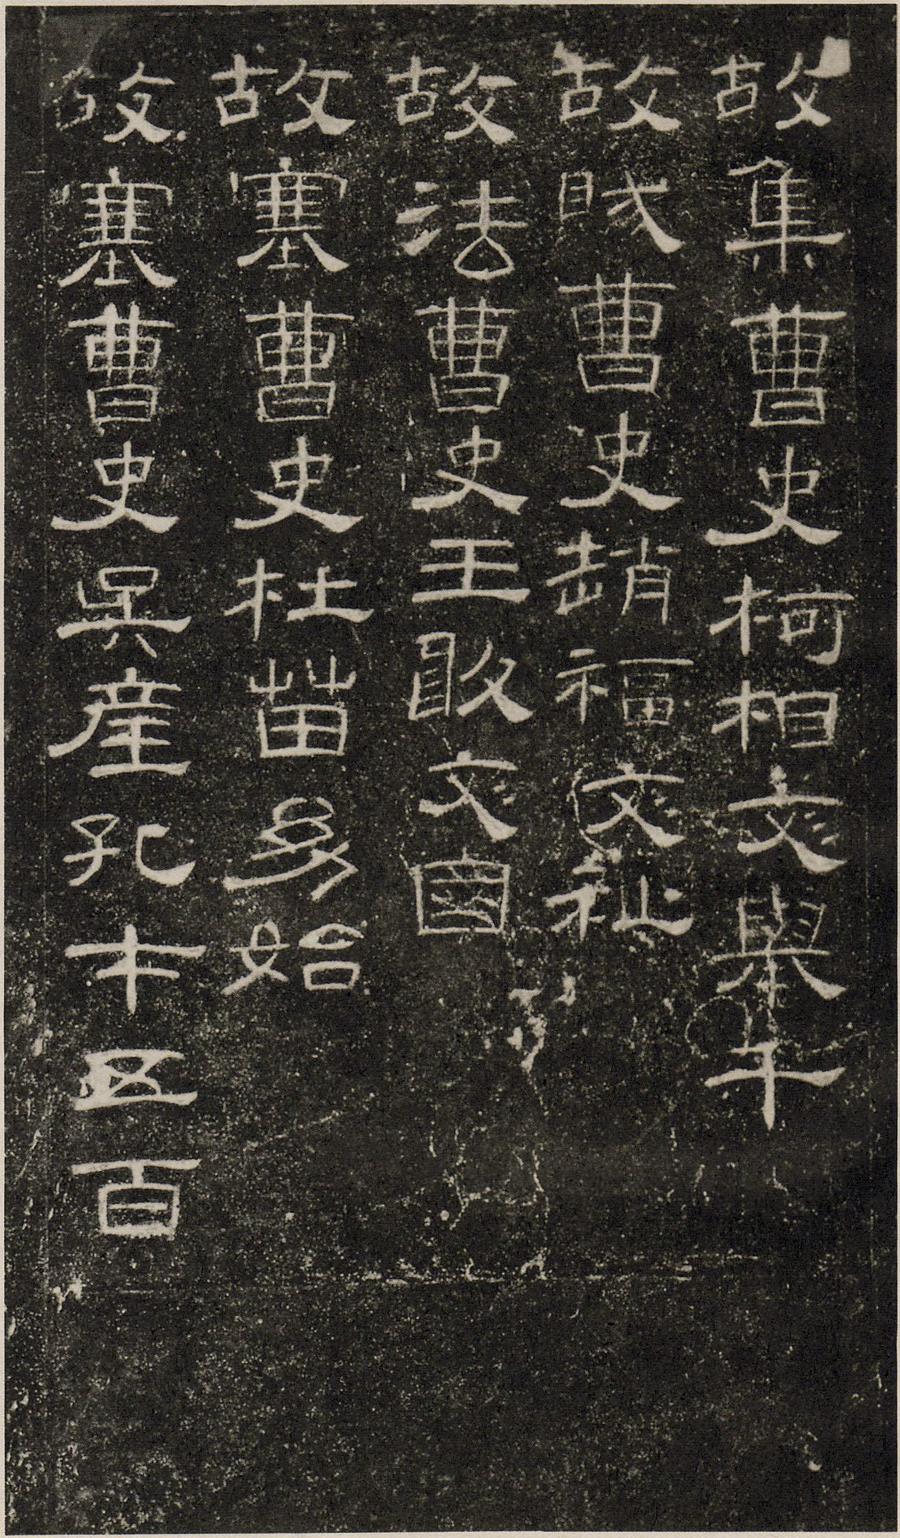 故集曹史柯相文舉千
故賊曹史趙福文祉
故法曹史王敢文國
故塞曹史杜苗幼始
故塞曹史吳產孔才五百